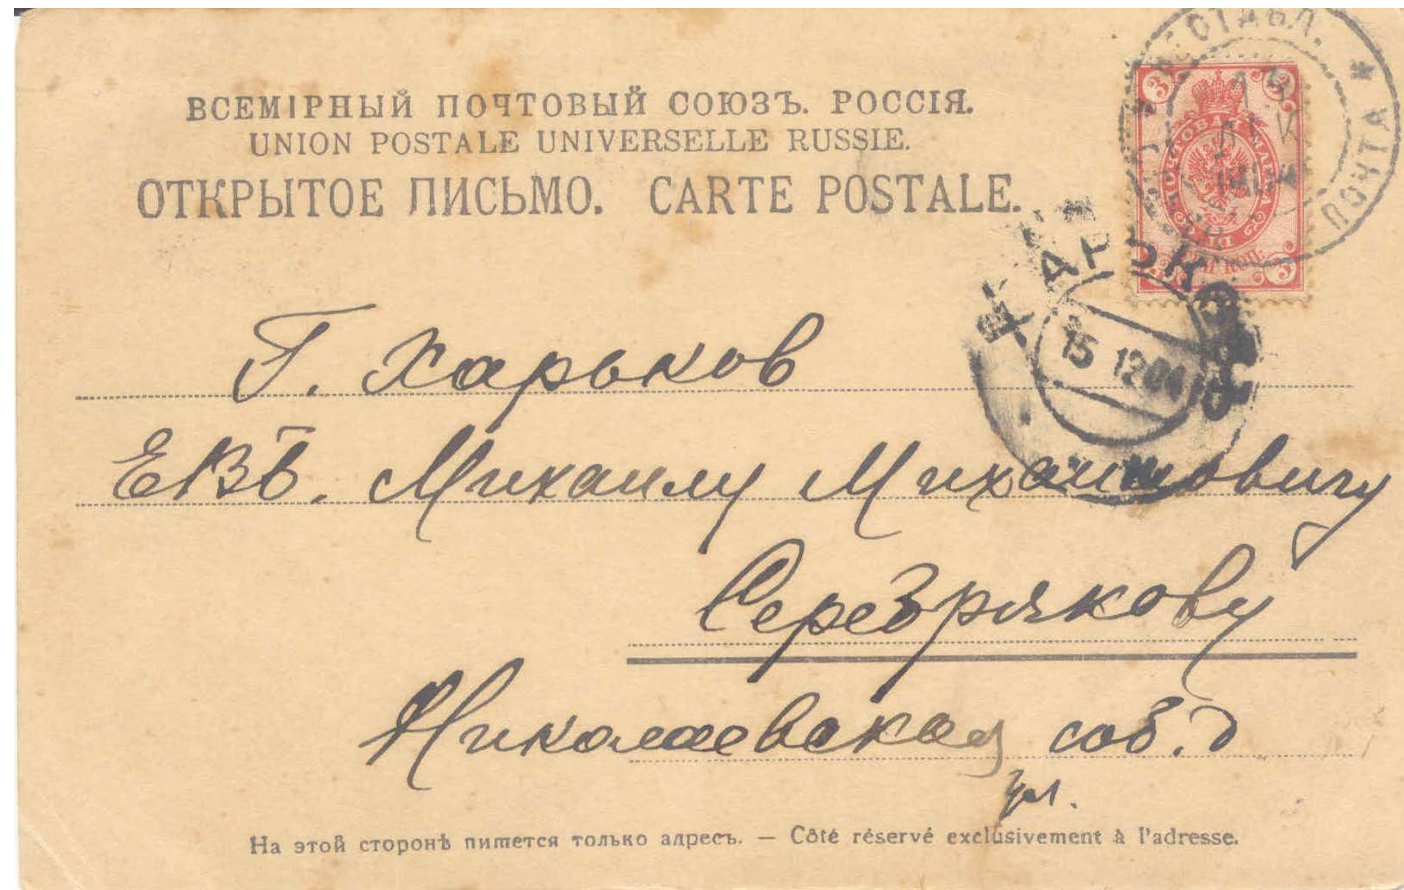 ВСЕМІРНЫЙ ПОЧТОВЫЙ СОЮЗЪ. РОССІЯ.
UNION POSTALE UNIVERSELLE RUSSIE.
ОТКРЫТОЕ ПИСЬМО. CARTE POSTALE.
ПОЧТА
3 3
ПОЧТОВАЯ МАРКА
3 3
ХАРЬКОВ
15 12 04
Г. Харьков
ЕВБ. Михаилу Михаиловичу
Серебрякову
Николаевская соб. д
ул.
На этой сторонѣ пишется только адресъ. — Côté réservé exclusivement à l'adresse.